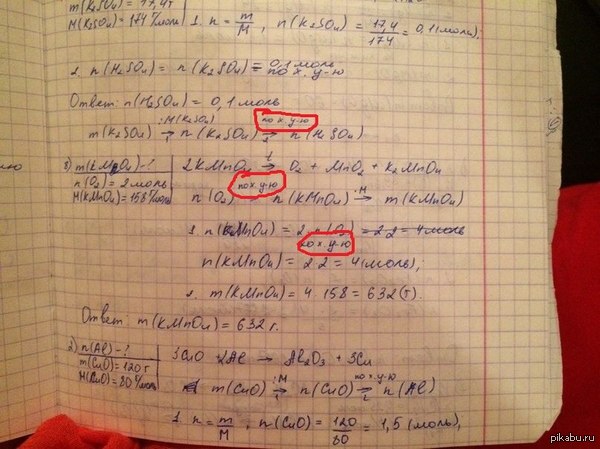 m(K₂SO₄) = 17,4 г
M(K₂SO₄) = 174 г/моль
1. n = m/M, n(K₂SO₄) = 17,4/174 = 0,1 (моль),
2. n(H₂SO₄) = n(K₂SO₄) = 0,1 моль
по х. у-ю
Ответ: n(H₂SO₄) = 0,1 моль
:M(K₂SO₄) по х. у-ю
m(K₂SO₄) → n(K₂SO₄) → n(H₂SO₄)
1 2
m(KMnO₄) - ?
n(O₂) = 2 моль
M(KMnO₄) = 158 г/моль
t
2KMnO₄ → O₂ + MnO₂ + K₂MnO₄
по х. у-ю ·M
n(O₂) n(KMnO₄) → m(KMnO₄)
1. n(KMnO₄) = 2·n(O₂) = 2·2 = 4 моль
по х. у-ю
n(KMnO₄) = 2·2 = 4 (моль),
2. m(KMnO₄) = 4·158 = 632 (г).
Ответ: m(KMnO₄) = 632 г.
2) n(Al) - ?
m(CuO) = 120 г
M(CuO) = 80 г/моль
3CuO 2Al → Al₂O₃ + 3Cu
:M по х. у-ю
m(CuO) → n(CuO) → n(Al)
1 2
1. n = m/M, n(CuO) = 120/80 = 1,5 (моль),
pikabu.ru